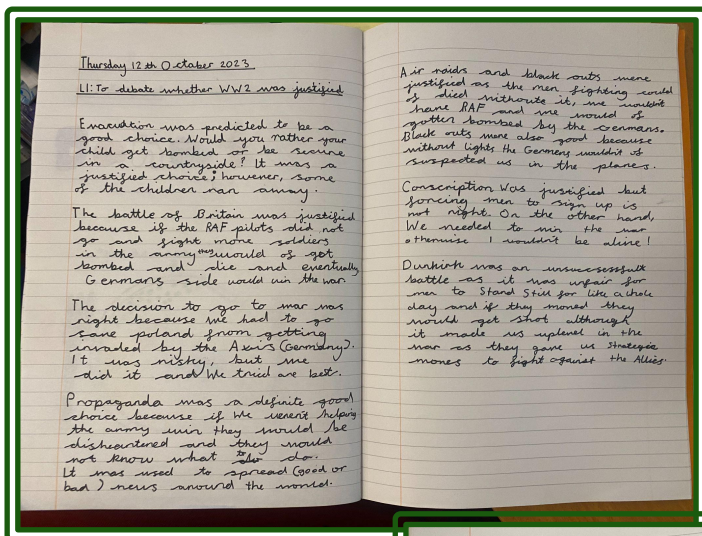 Thursday 12th October 2023
LI: To debate whether WW2 was justified
Evacution was predicted to be a
good choice. Would you rather your
child get bombed or be secure
in a countryside? It was a
justified choice; however, some
of the children ran away.
The battle of Britain was justified
because if the RAF pilots did not
go and fight more soldiers
in the army they would of got
bombed and die and eventually
Germans side would win the war.
The decision to go to war was
right because we had to go
save poland from getting
invaded by the Axis (Germany).
It was risky, but we
did it and We tried are best.
Propaganda was a definite good
choice because if We weren't helping
the army win they would be
disheartened and they would
not know what to do.
It was used to spread (good or
bad) news around the world.
Air raids and black outs were
justified as the men fighting could
of died withoute it, we wouldn't
have RAF and we would of
gotten bombed by the Germans.
Black outs were also good because
without lights the Germens wouldn't of
suspected us in the planes.
Conscription Was justified but
forcing men to sign up is
not right. On the other hand,
We needed to win the war
otherwise I wouldn't be alive!
Dunkirk was an unsuccessfult
battle as it was unfair for
men to Stand Still for like a whole
day and if they moved they
would get shot although
it made us uplevel in the
war as they gave us strategic
moves to fight against the Allies.